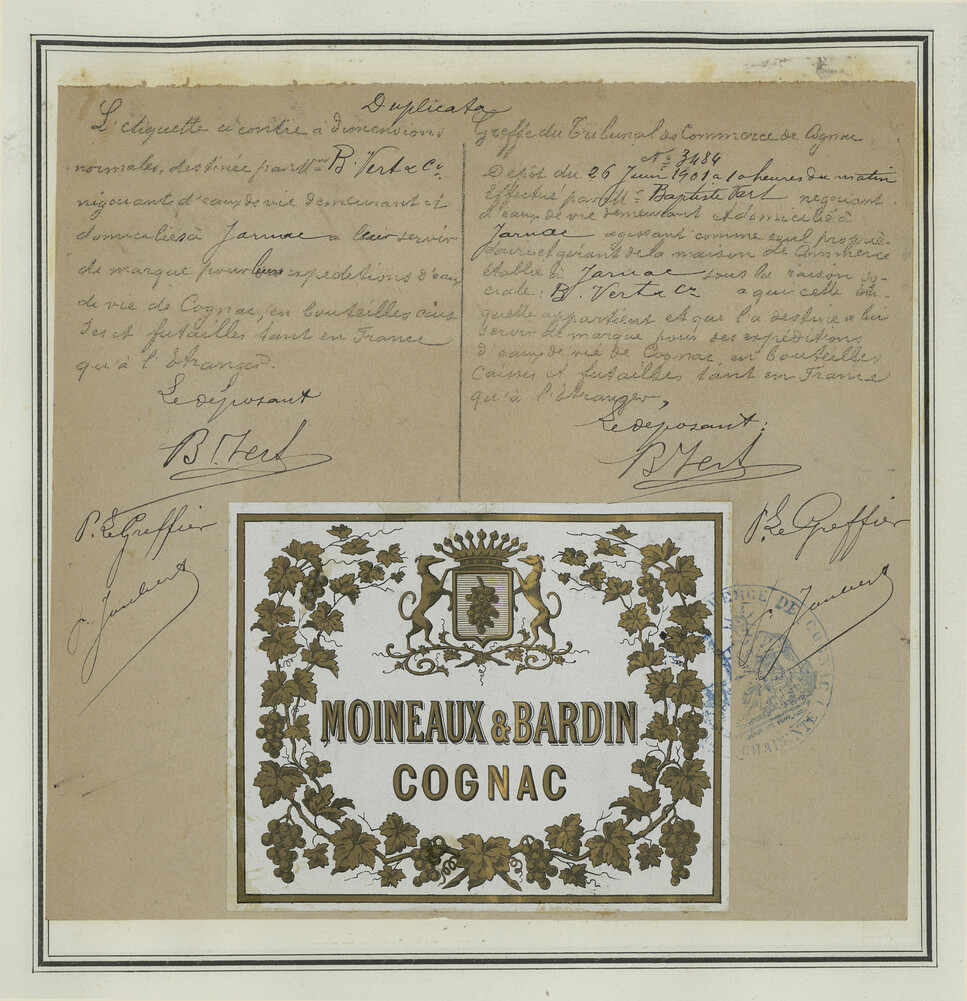 Duplicata
L'étiquette ci contre à dimensions
normales, destinée par Mrs B. Vert & Cie
négociants d'eaux de vie demeurant et
domiciliés à Jarnac à leur servir
de marque pour leurs expéditions d'eaux
de vie de Cognac, en bouteilles cais
ses et futailles tant en France
qu'à l'Etranger.
Le déposant
B. Vert
P. Le Greffier
Greffe du Tribunal de Commerce de Cognac
No 3484
Dépôt du 26 Juin 1901 à 10 heures du matin
Effectué par Mr Baptiste Vert négociant
d'eaux de vie demeurant et domicilié à
Jarnac agissant comme seul proprié-
taire et gérant de la maison de Commerce
établie à Jarnac sous la raison so-
ciale: B. Vert & Cie à qui cette éti-
quette appartient et qui l'a destinée à lui
servir de marque pour ses expéditions
d'eaux de vie de Cognac, en bouteilles
caisses et futailles tant en France
qu'à l'étranger,
Le déposant:
B Vert
P. Le Greffier
MOINEAUX & BARDIN
COGNAC